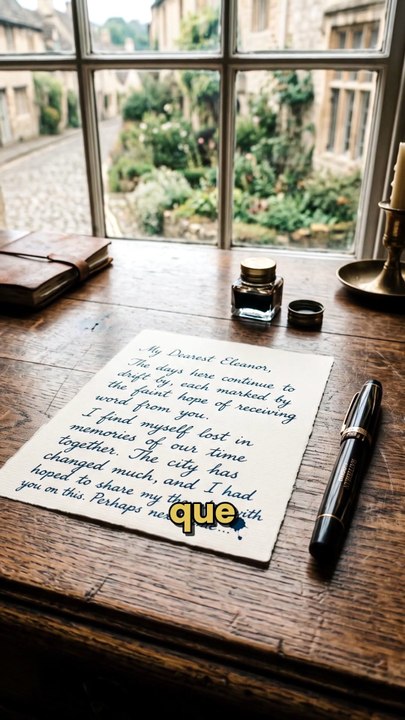 My Dearest Eleanor,
The days here continue to
drift by, each marked by
the faint hope of receiving
word from you.
I find myself lost in
memories of our time
together. The city has
changed much, and I had
hoped to share my with
you on this. Perhaps
que